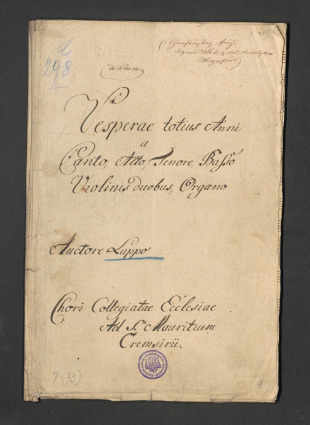 298
Vesperae totius Anni
a
Canto, Alto, Tenore Basso
Violinis duobus, Organo
Auctore Luppo
Chori Collegiatae Ecclesiae
Ad S. Mauritium
Cremsirii.